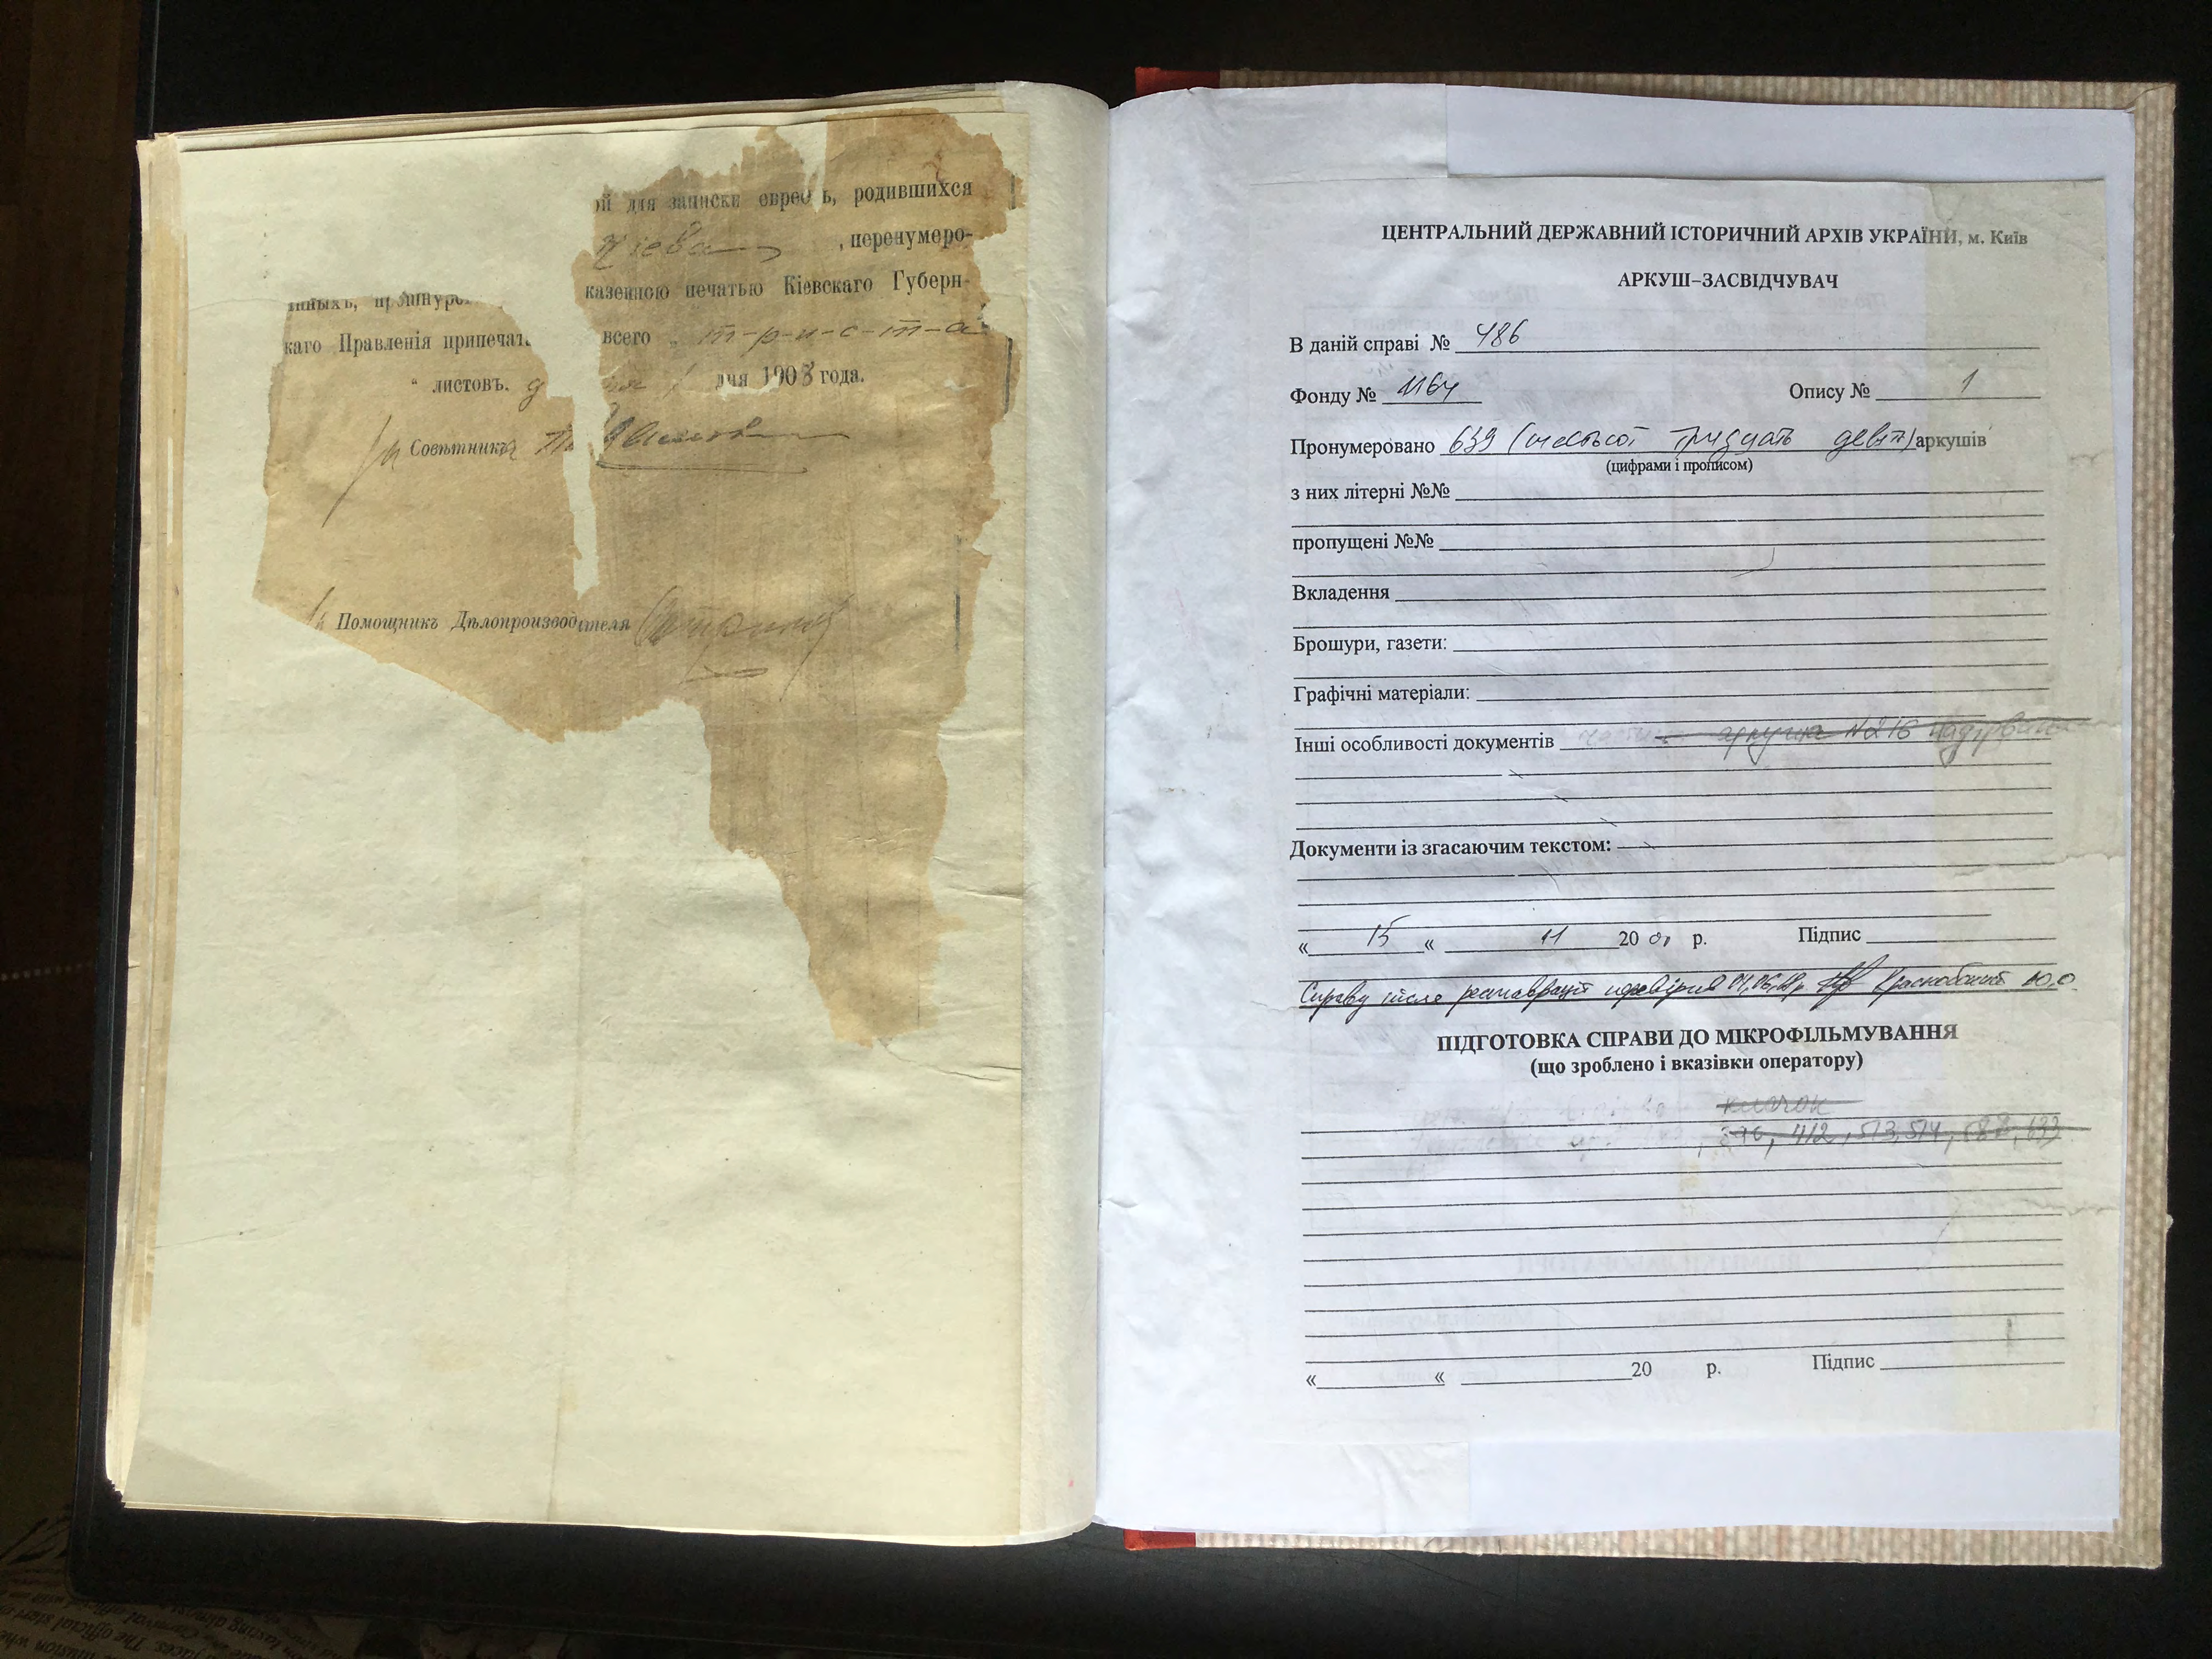 ой для записки еврее ъ, родившихся
Кіева, перенумеро-
нныхъ, прошнуро казенною печатью Кіевскаго Губерн-
каго Правленія припечата всего „ т-р-и-с-т-а
“ листовъ. дня 1908 года.
Совѣтника
Помощникъ Дѣлопроизводителя
ЦЕНТРАЛЬНИЙ ДЕРЖАВНИЙ ІСТОРИЧНИЙ АРХІВ УКРАЇНИ, м. Київ
АРКУШ–ЗАСВІДЧУВАЧ
В даній справі № 486
Фонду № 1164 Опису № 1
Пронумеровано 639 (шістсот тридцять девять) аркушів
(цифрами і прописом)
з них літерні №№
пропущені №№
Вкладення
Брошури, газети:
Графічні матеріали:
Інші особливості документів аркуша №216 надірвана
Документи із згасаючим текстом:
« 15 « 11 20 р. Підпис
Справу після реставрації перевірив Краснобокий
ПІДГОТОВКА СПРАВИ ДО МІКРОФІЛЬМУВАННЯ
(що зроблено і вказівки оператору)
412, 513, 514, 633
« « 20 р. Підпис